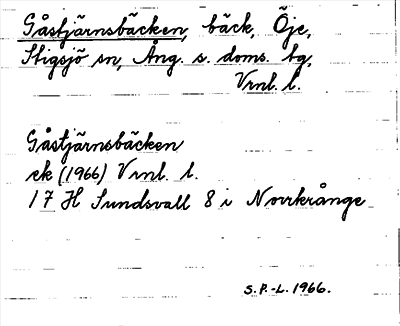 Gåstjärnsbäcken, bäck, Öje,
Stigsjö sn, Ång. s. doms. tg,
Vrnl. l.
Gåstjärnsbäcken
ek (1966) Vrnl. l.
17 H Sundsvall 8 i Norrkrånge
S.P.-L. 1966.